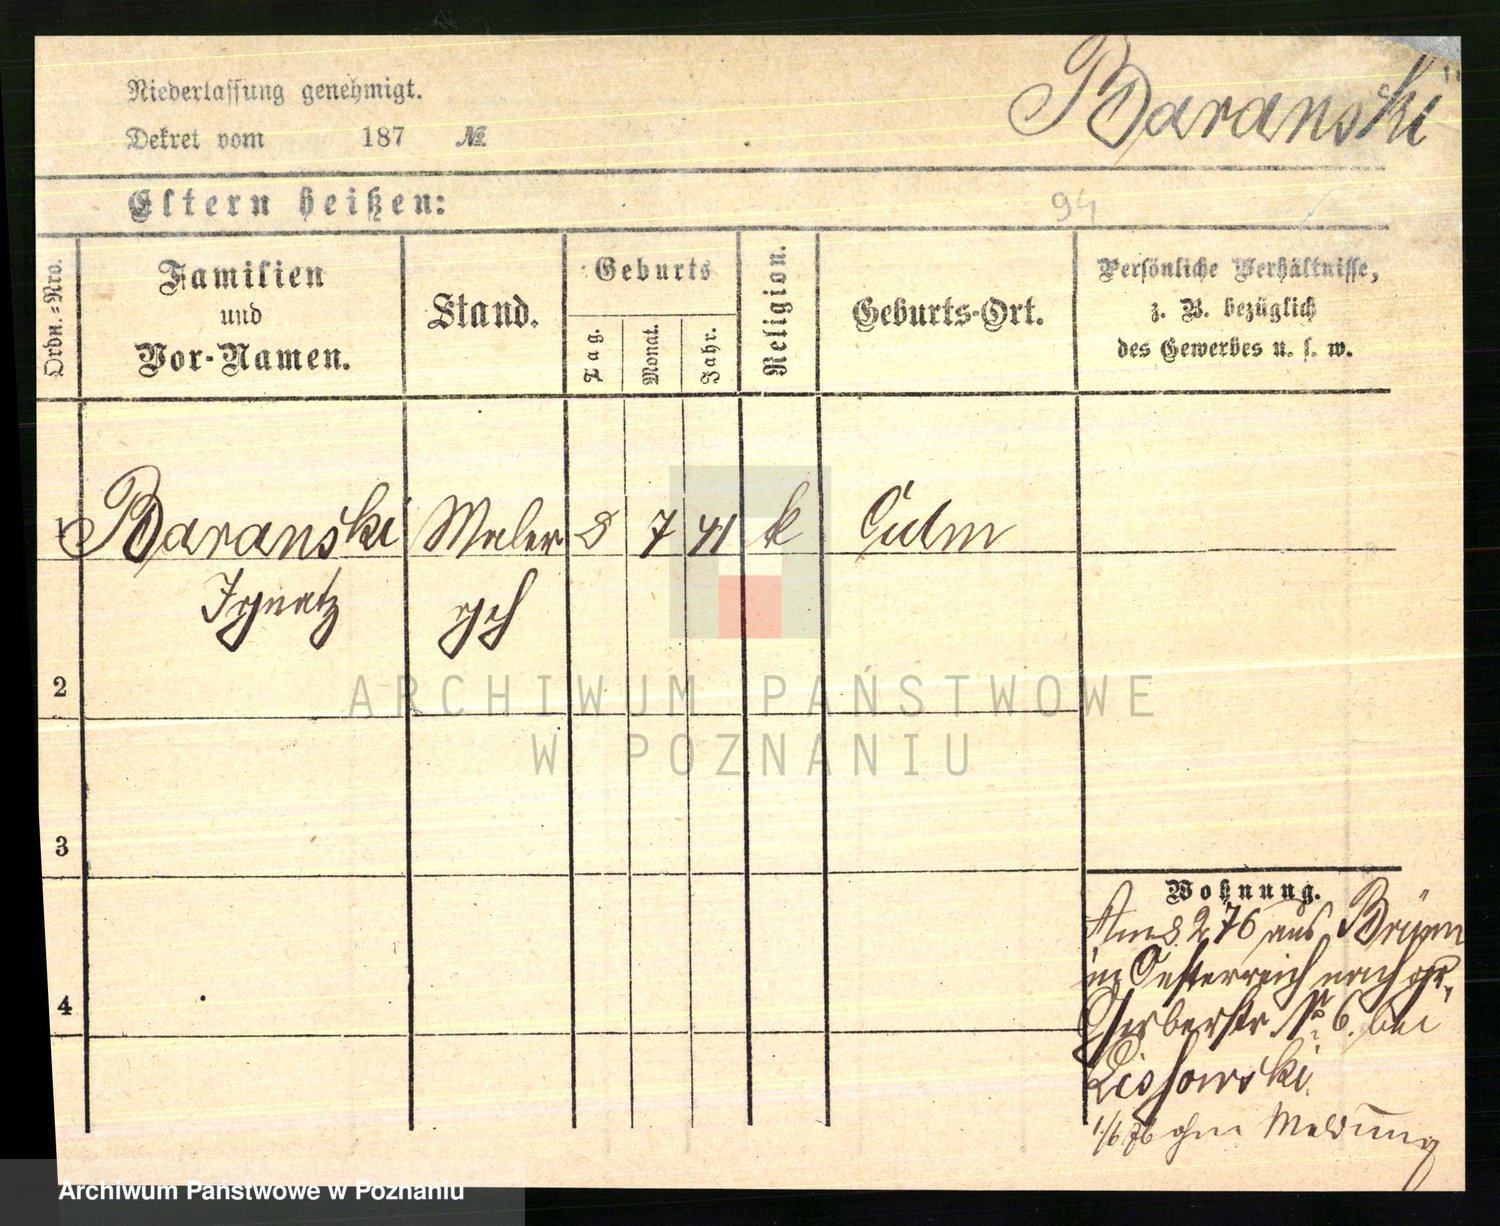 Baranski
Niederlassung genehmigt.
Dekret vom 187 №
Eltern heißen:
94
Ordn.-Nro.
Familien
und
Vor-Namen.
Stand.
Geburts
Tag.
Monat.
Jahr.
Religion.
Geburts-Ort.
Persönliche Verhältnisse,
z. B. bezüglich
des Gewerbes u. s. w.
1 Baranski Maler 8 7 41 k Culm
Ignatz
2
ARCHIWUM PAŃSTWOWE
W POZNANIU
3
Wohnung.
Am 8. 2 76 aus Brünn
in Oesterreich nach gr.
Gerberstr № 6. bei
4
1/6 76 ohne Meldung
Archiwum Państwowe w Poznaniu